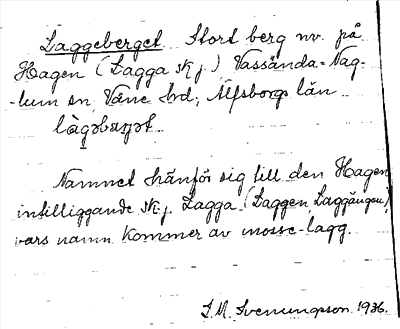 Laggeberget Stort berg nv. på
Hagen (Lagga skj.) Vassända-Nag-
-lum sn, Väne hd, Älfsborgs län
Namnet hänför sig till den Hagen
intilliggande skj. Lagga (Laggen, Laggängen)
vars namn kommer av mosse-lagg.
S. M. Svenungsson 1936.